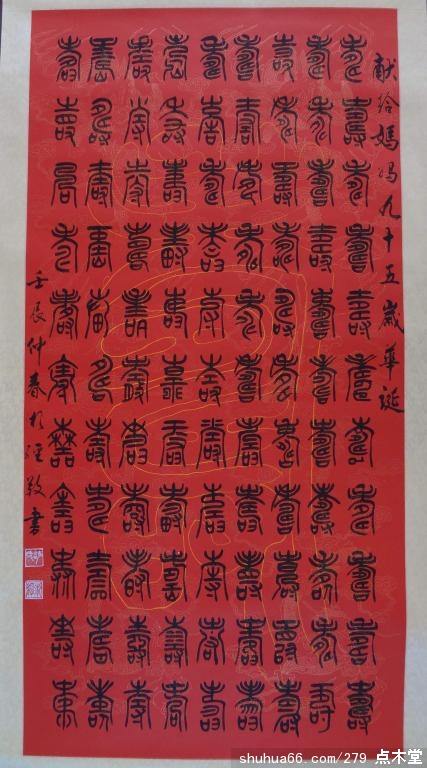 献給媽妈九十五歲華誕
壽壽壽壽壽壽壽壽壽壽壽
壽壽壽壽壽壽壽壽壽壽壽
壽壽壽壽壽壽壽壽壽壽壽
壽壽壽壽壽壽壽壽壽壽壽
壽壽壽壽壽壽壽壽壽壽壽
壽壽壽壽壽壽壽壽壽壽壽
壽壽壽壽壽壽壽壽壽壽壽
壽壽壽壽壽壽壽壽壽壽壽
壽壽壽壽壽壽壽壽壽壽壽
壬辰仲春敬書
shuhua66.com/279 点木堂